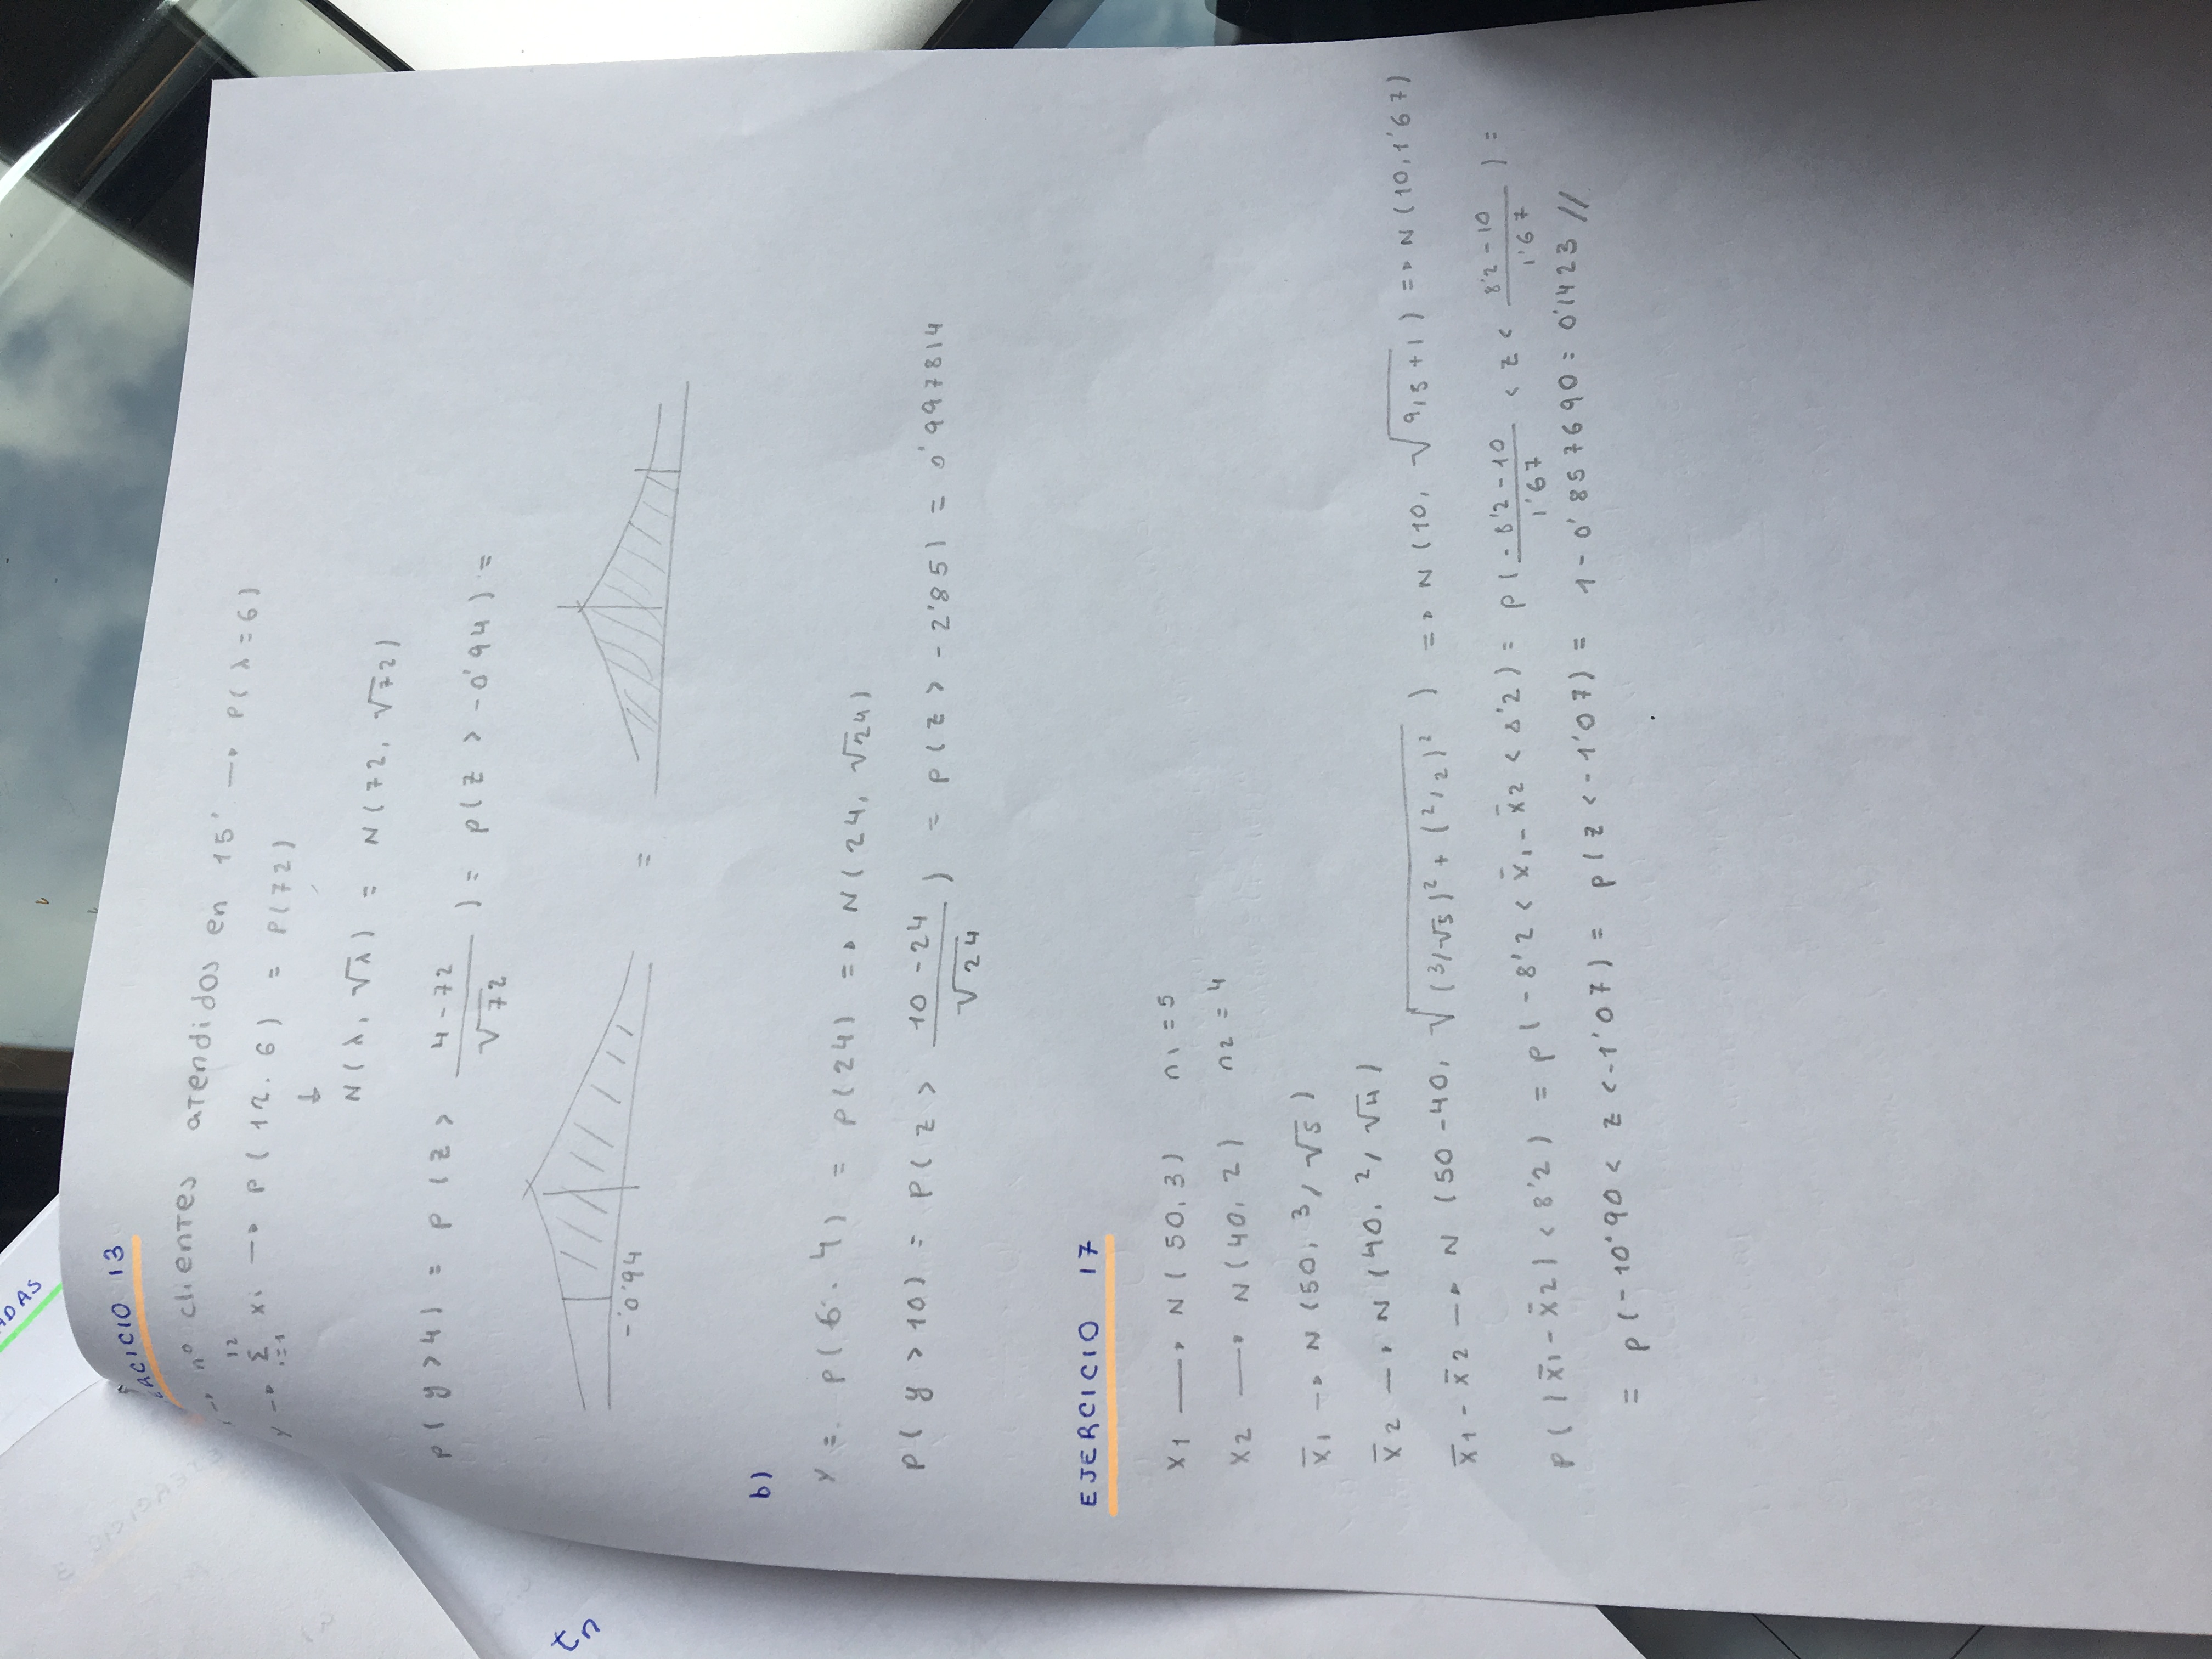 ADAS
ERCICIO 13
→ nº clientes atendidos en 15' → P(λ=6)
y → Σ xi → P(12.6) = P(72)
12
i=1
↓
N(λ, √λ) = N(72, √72)
P(y>4) = P(z> (4-72)/√72) = P(z > -0'94) =
-0'94
=
b)
Y = P(6.4) = P(24) => N(24, √24)
P(y>10) = P(z> (10-24)/√24) = P(z> -2'85) = 0'997814
EJERCICIO 17
X1 → N(50,3) n1 = 5
X2 → N(40,2) n2 = 4
x̄1 → N(50, 3/√5)
x̄2 → N(40, 2/√4)
x̄1 - x̄2 → N(50-40, √((3/√5)² + (2/2)²)) => N(10, √(9/5+1)) => N(10,1'67)
P(|x̄1-x̄2| < 8'2) = P(-8'2 < x̄1-x̄2 < 8'2) = P((-8'2-10)/1'67 < z < (8'2-10)/1'67) =
= P(-10'90 < z < -1'07) = P(z < -1'07) = 1-0'857690 = 0'1423 //
tn